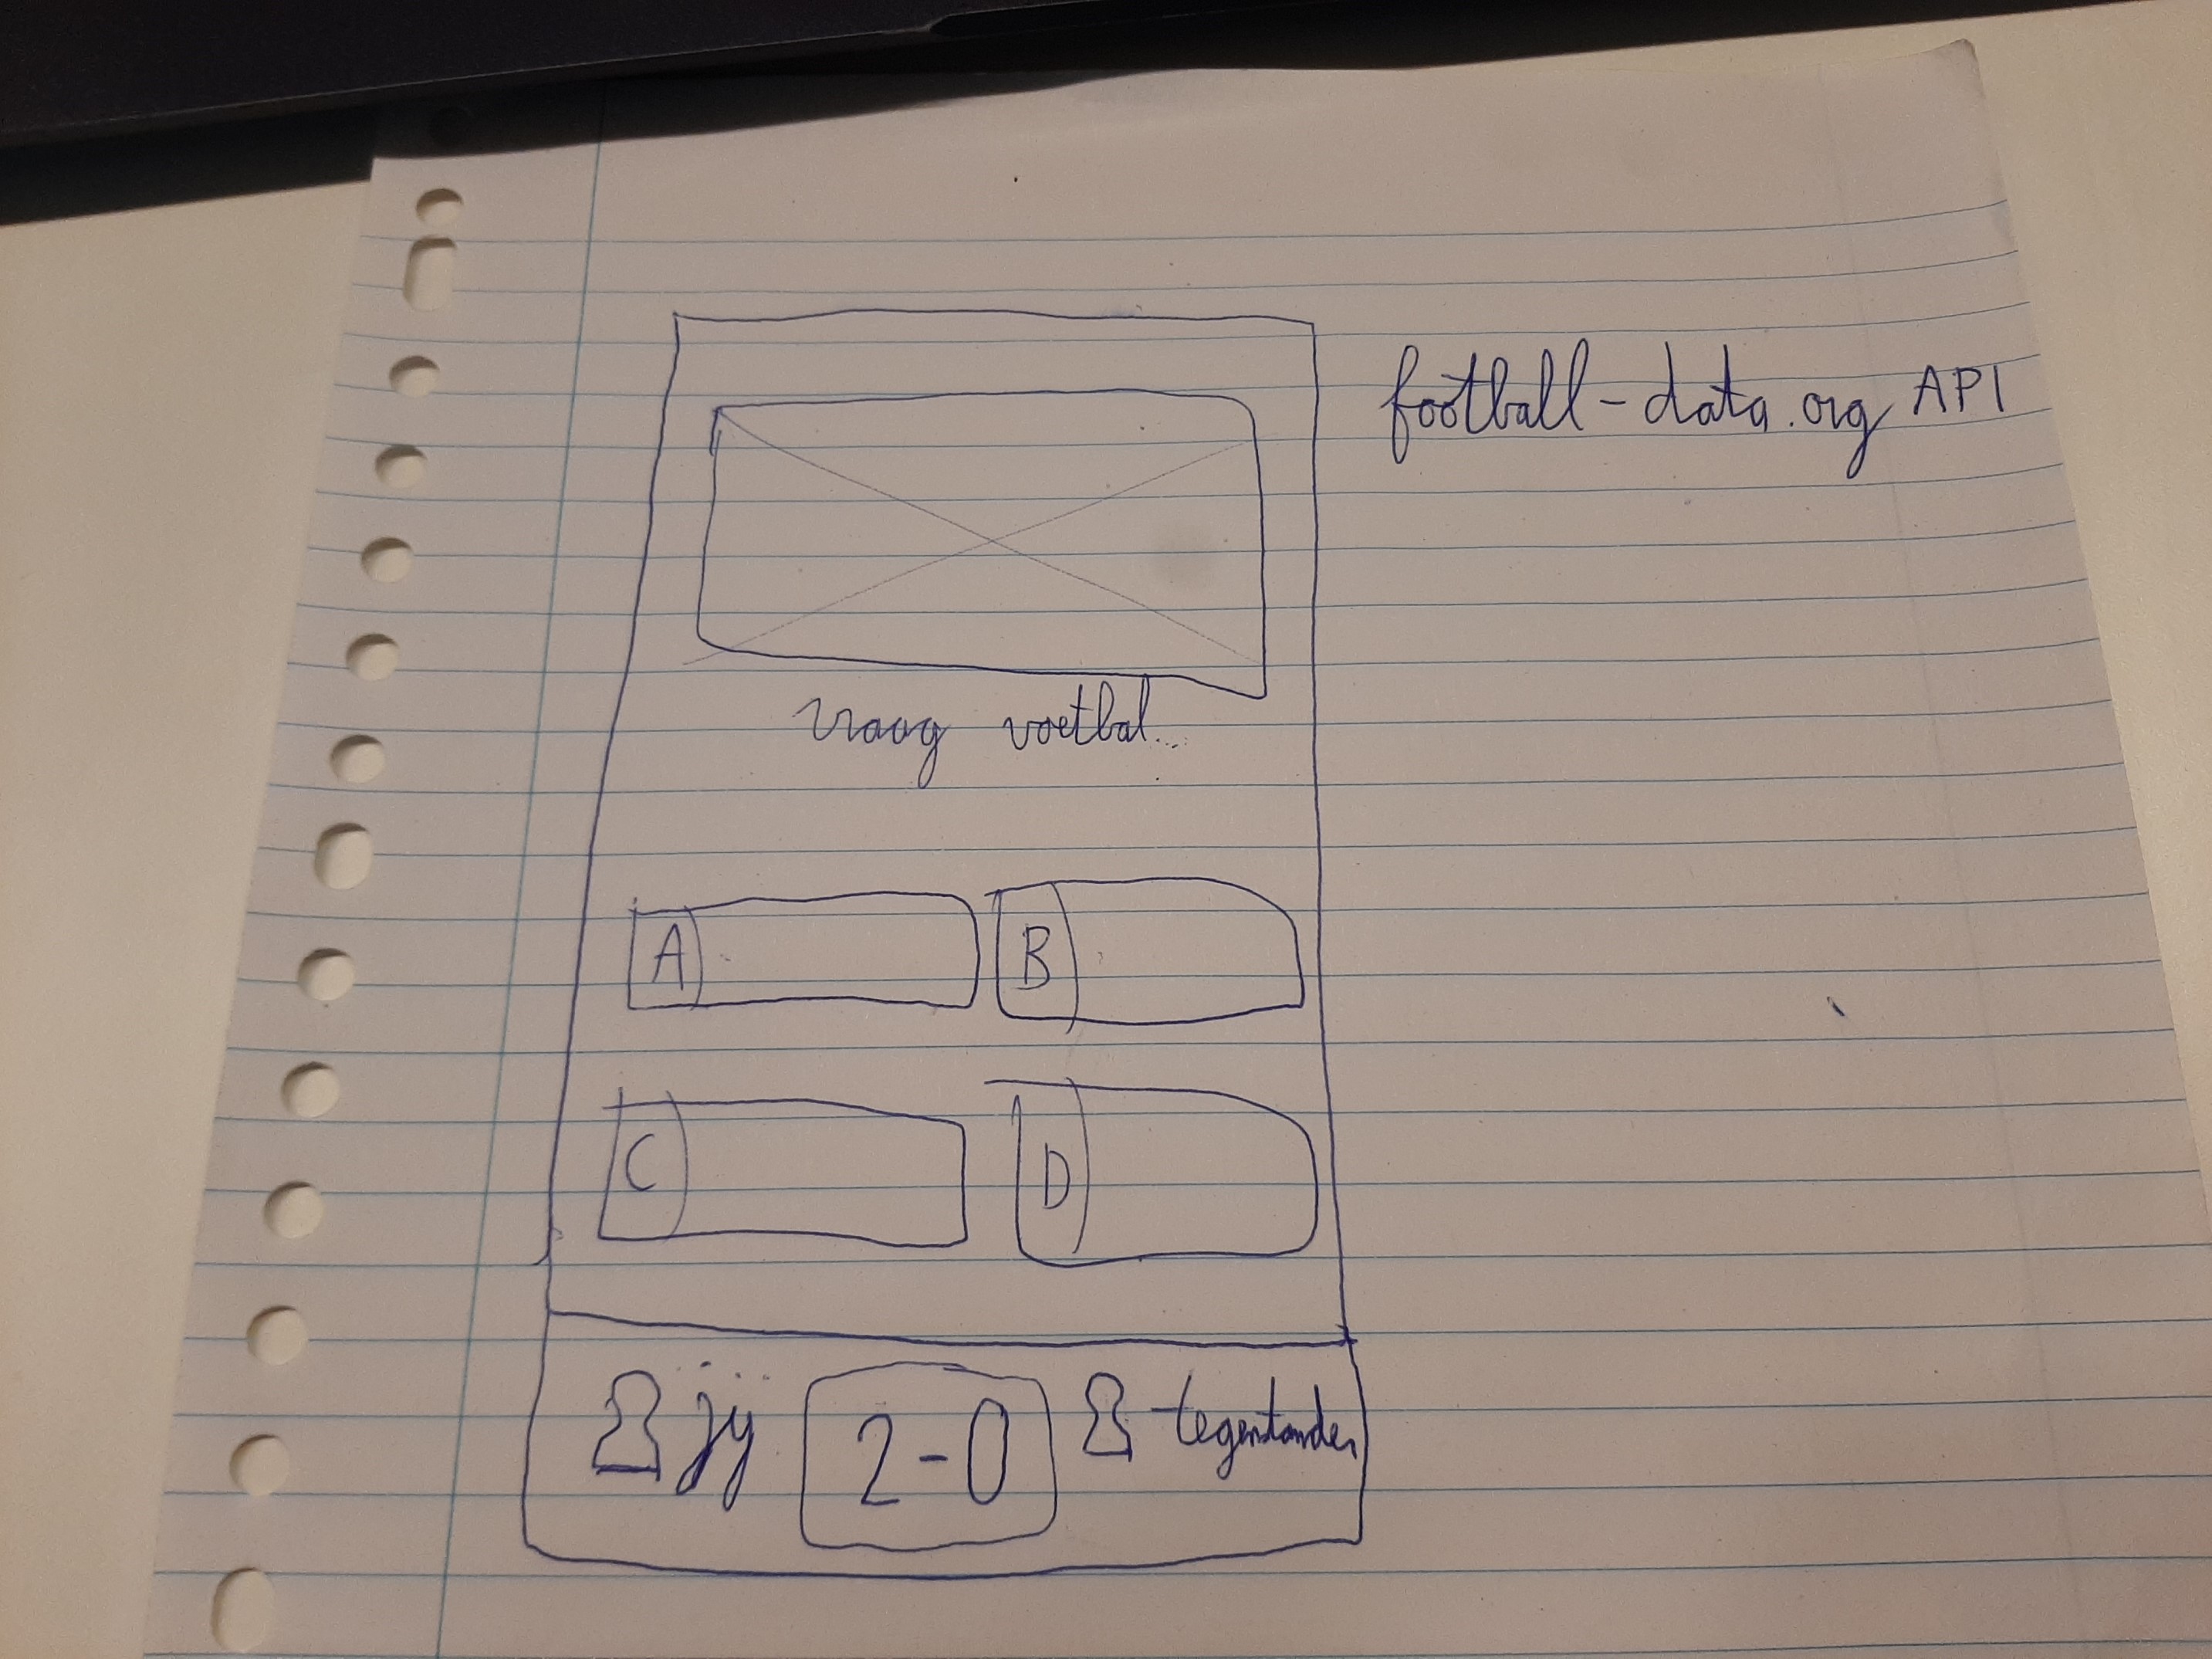 football-data.org API
vraag voetbal...
A
B
C
D
jij 2-0 tegenstander